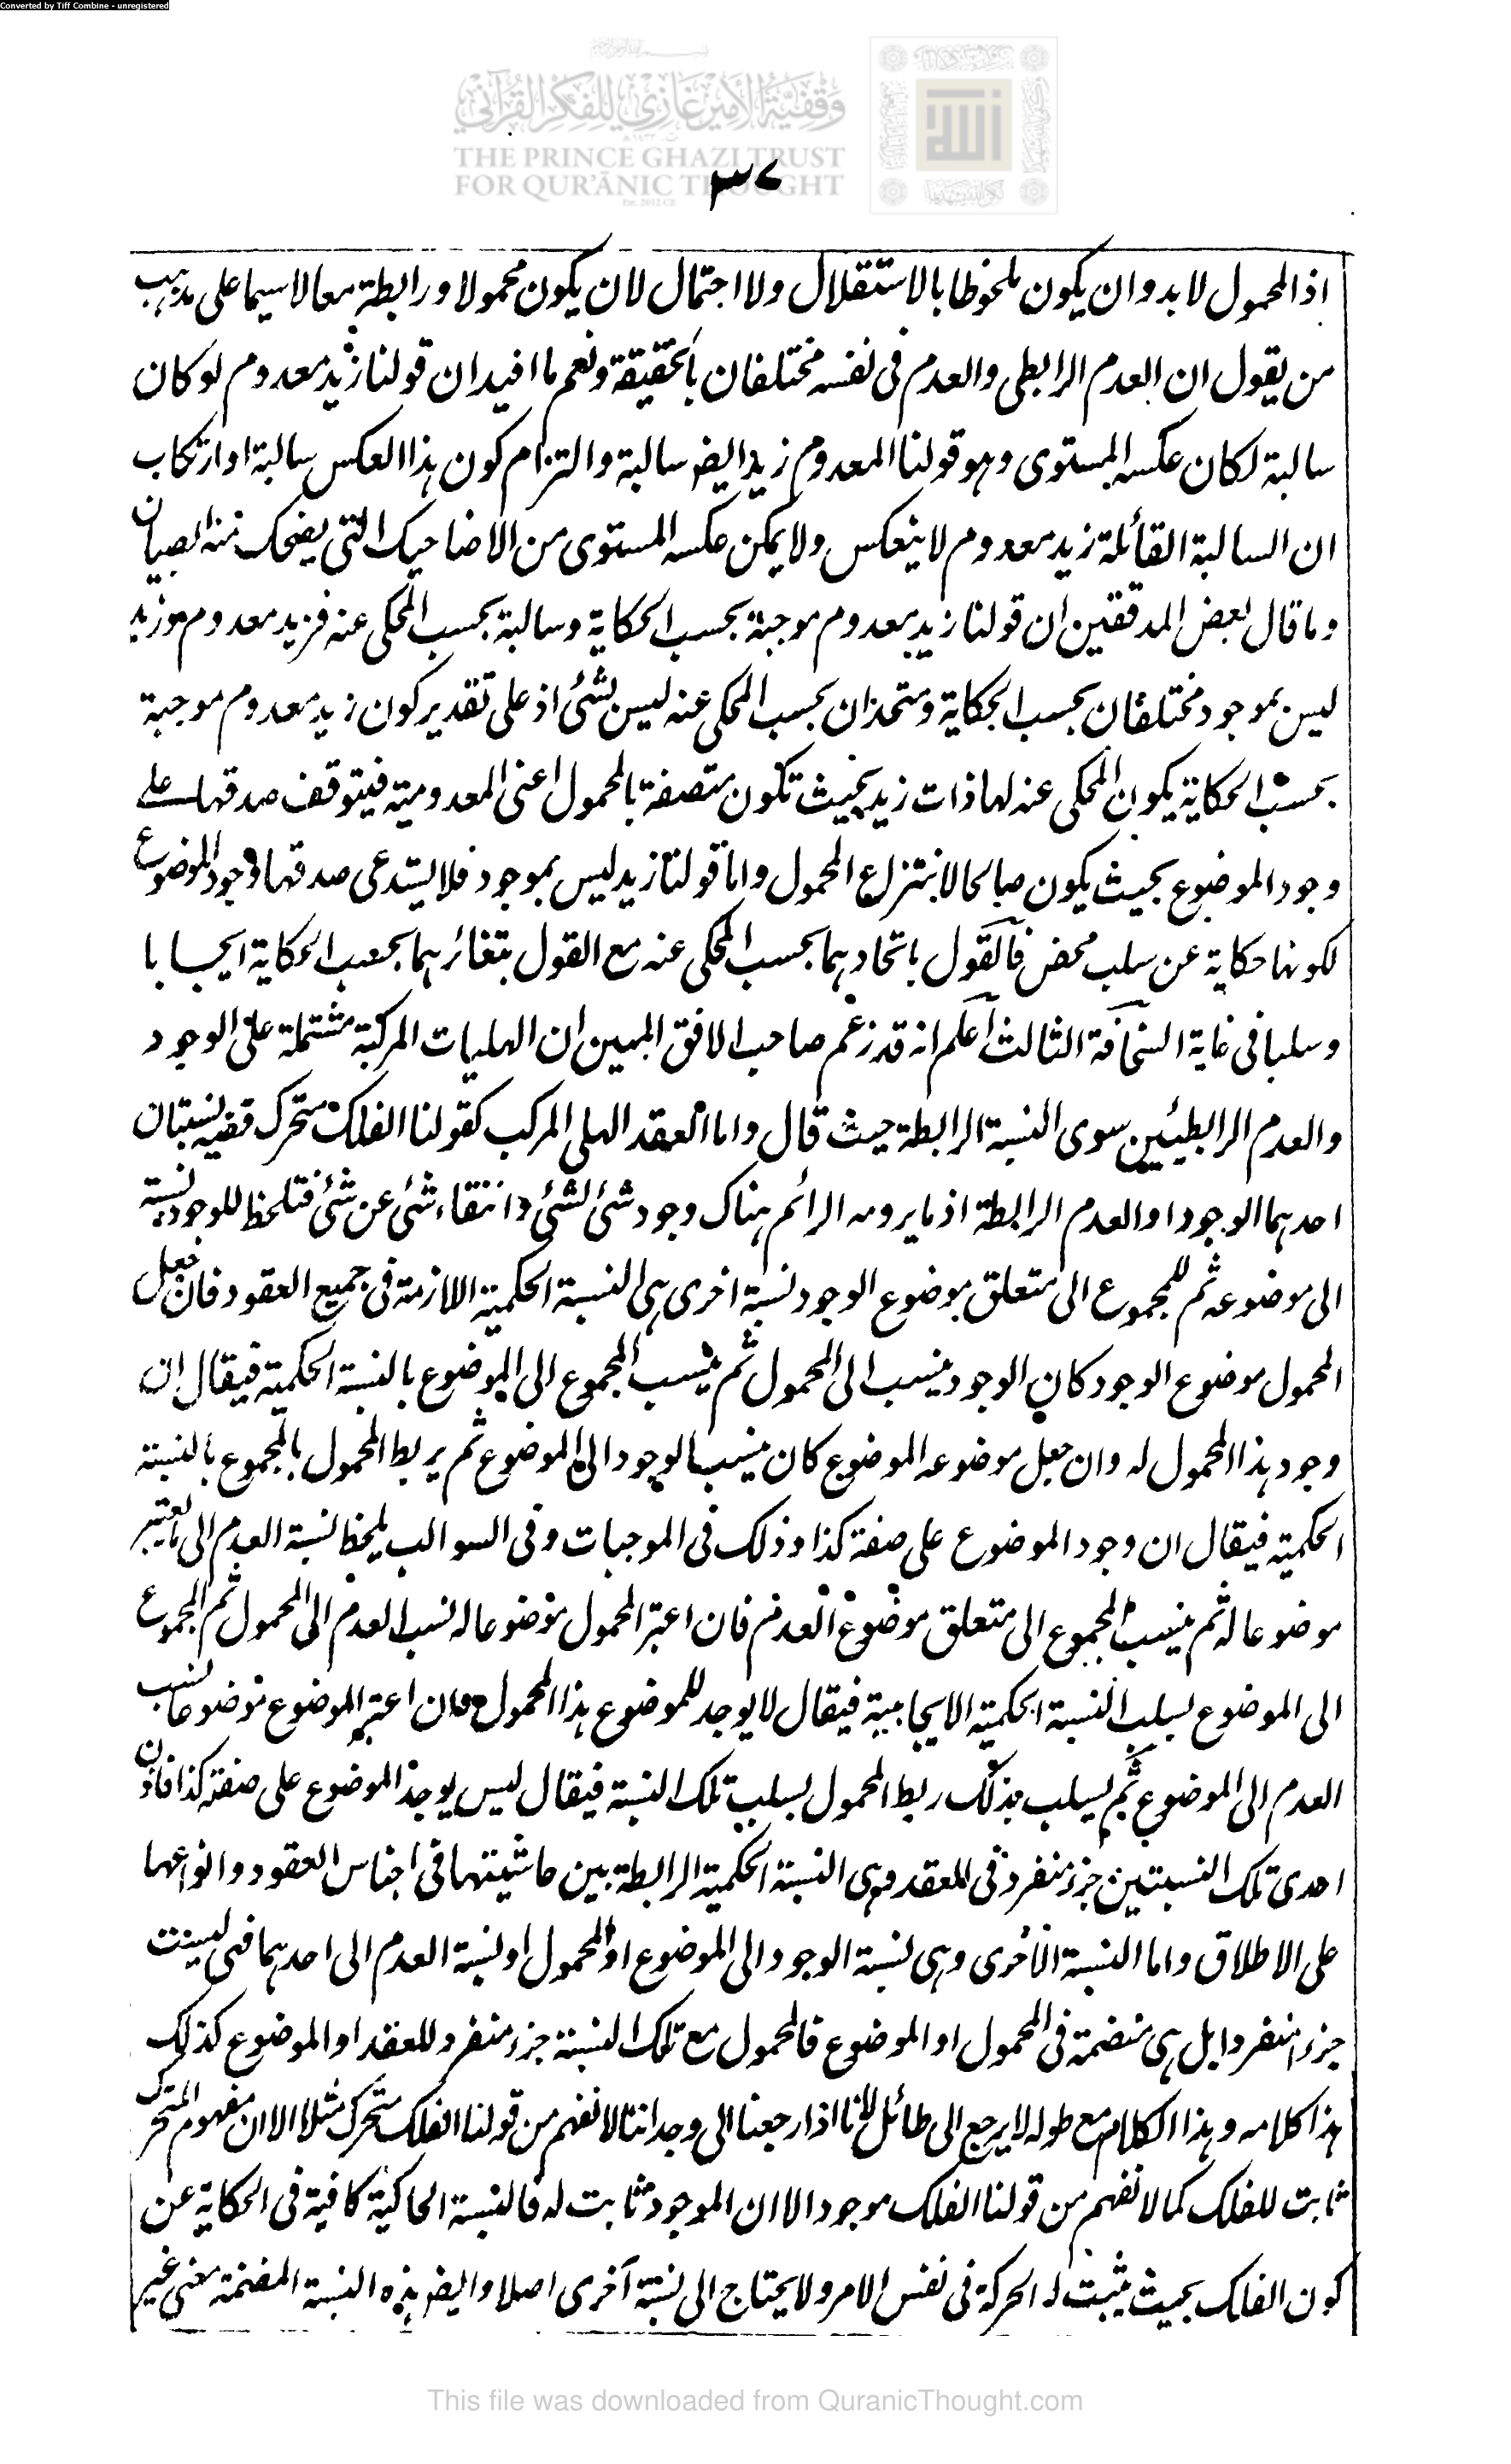 Converted by Tiff Combine - unregistered
وقفية الأمير غازي للفكر القرآني
THE PRINCE GHAZI TRUST
FOR QUR'ĀNIC THOUGHT
٣٧
اذ المحمول لا بد وان يكون ملحوظا بالاستقلال ولا احتمال لان يكون محمولا ورابطة معا لا سيما على مذهب
من يقول ان العدم الرابطى والعدم فى نفسه مختلفان بالحقيقة ونعم ما افيد ان قولنا زيد معدوم لو كان
سالبة لكان عكسه المستوى وهو قولنا المعدوم زيد ايض سالبة والتزام كون هذا العكس سالبة او ارتكاب
ان السالبة القائلة زيد معدوم لا ينعكس ولا يمكن عكسه المستوى من الاضاحيك التى يضحك منه الصبيان
وما قال بعض المدققين ان قولنا زيد معدوم موجبة بحسب الحكاية وسالبة بحسب المحكى عنه فزيد معدوم وزيد
ليس بموجود مختلفان بحسب الحكاية ومتحدان بحسب المحكى عنه ليس بشئ اذ على تقدير كون زيد معدوم موجبة
بحسب الحكاية يكون المحكى عنه لها ذات زيد بحيث تكون متصفة بالمحمول اعنى المعدومية فيتوقف صدقها على
وجود الموضوع بحيث يكون صالحا لانتزاع المحمول واما قولنا زيد ليس بموجود فلا يستدعى صدقها وجود الموضوع
لكونها حكاية عن سلب محض فالقول باتحادهما بحسب المحكى عنه مع القول بتغائرهما بحسب الحكاية ايجابا
وسلبا فى غاية السخافة الثالث اعلم انه قد زعم صاحب الافق المبين ان الهليات المركبة مشتملة على الوجود
والعدم الرابطيين سوى النسبة الرابطة حيث قال واما العقد الهلى المركب كقولنا الفلك متحرك ففيه نسبتان
احدهما الوجود او العدم الرابطة اذ ما يرومه الرائم هناك وجود شئ لشئ وانتفاء شئ عن شئ فتلحظ للوجود نسبة
الى موضوعه ثم للمجموع الى متعلق بموضوع الوجود نسبة اخرى هى النسبة الحكمية اللازمة فى جميع العقود فان جعل
المحمول موضوع الوجود كان الوجود ينسب الى المحمول ثم ينسب المجموع الى الموضوع بالنسبة الحكمية فيقال ان
وجود هذا المحمول له وان جعل موضوعه الموضوع كان ينسب الوجود الى الموضوع ثم يربط المحمول بالمجموع بالنسبة
الحكمية فيقال ان وجود الموضوع على صفة كذا وذلك فى الموجبات وفى السوالب يلحظ نسبة العدم الى ما يعتبر
موضوعا له ثم ينسب المجموع الى متعلق موضوع العدم فان اعتبر المحمول موضوعا له نسب العدم الى المحمول ثم المجموع
الى الموضوع بسلب النسبة الحكمية الايجابية فيقال لا يوجد للموضوع هذا المحمول وان اعتبر الموضوع موضوعا نسب
العدم الى الموضوع ثم يسلب بذلك ربط المحمول بسلب تلك النسبة فيقال ليس يوجد الموضوع على صفة كذا فاذن
احدى تلك النسبتين جزء منفرد فى العقد وهى النسبة الحكمية الرابطة بين حاشيتيها فى اجناس العقود وانواعها
على الاطلاق واما النسبة الاخرى وهى نسبة الوجود الى الموضوع او المحمول او نسبة العدم الى احدهما فهى ليست
جزء منفردا بل هى منضمة فى المحمول او الموضوع فالمحمول مع تلك النسبة جزء منفرد للعقد او الموضوع كذلك
هذا كلامه وهذا الكلام مع طوله لا يرجع الى طائل لانا اذا رجعنا الى وجداننا لا نفهم من قولنا الفلك متحرك مثلا الا ان مفهوم المتحرك
ثابت للفلك كما لا نفهم من قولنا الفلك موجود الا ان الموجود ثابت له فالنسبة الحاكية كافية فى الحكاية عن
كون الفلك بحيث يثبت له الحركة فى نفس الامر ولا يحتاج الى نسبة آخرى اصلا وايض هذه النسبة المضمنة معنى غير
This file was downloaded from QuranicThought.com